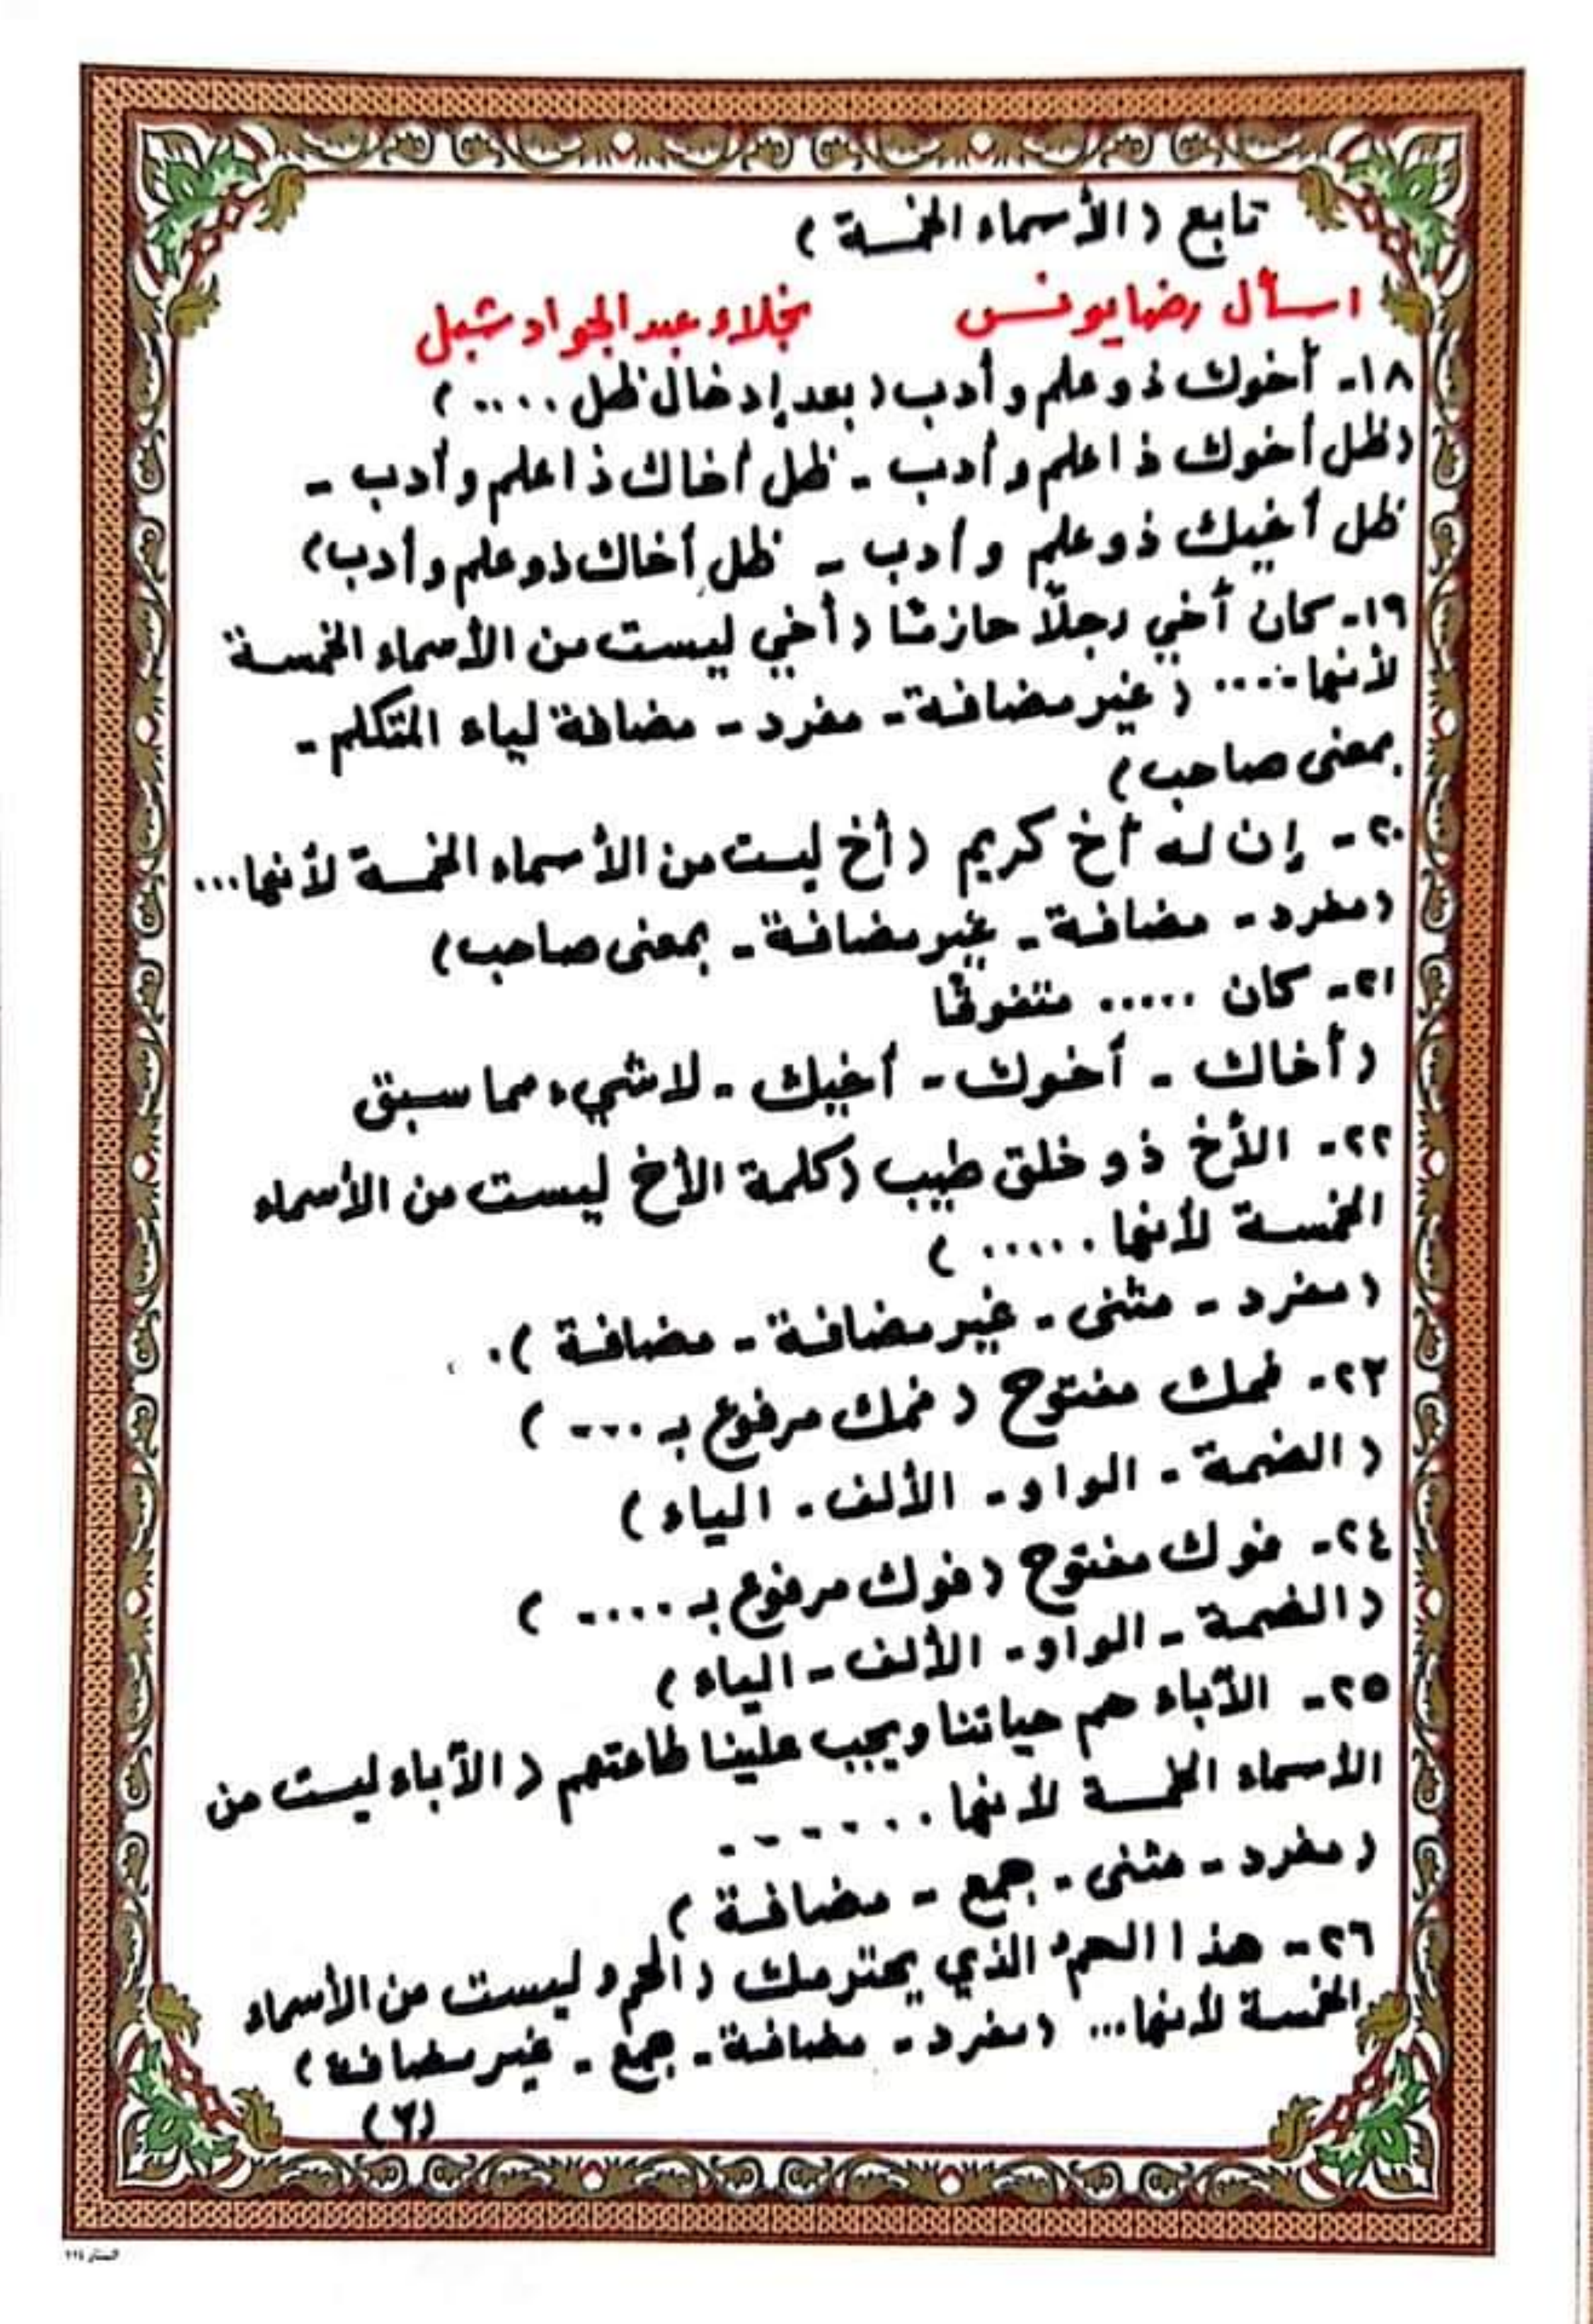 تابع (الأسماء الخمسة)
اسأل رضا يونس نجلاء عبد الجواد شبل
١٨- أخوك ذو علم وأدب (بعد إدخال ظل .....)
(ظل أخوك ذا علم وأدب - ظل أخاك ذا علم وأدب -
ظل أخيك ذو علم وأدب - ظل أخاك ذو علم وأدب)
١٩- كان أخي رجلًا حازمًا (أخي ليست من الأسماء الخمسة
لأنها ..... (غير مضافة - مفرد - مضافة لياء المتكلم -
بمعنى صاحب)
٢٠- إن له أخ كريم (أخ ليست من الأسماء الخمسة لأنها ...
(مفرد - مضافة - غير مضافة - بمعنى صاحب)
٢١- كان ..... متفوقًا
(أخاك - أخوك - أخيك - لا شيء مما سبق
٢٢- الأخ ذو خلق طيب (كلمة الأخ ليست من الأسماء
الخمسة لأنها ......)
(مفرد - مثنى - غير مضافة - مضافة).
٢٣- فمك مفتوح (فمك مرفوع بـ ....)
(الضمة - الواو - الألف - الياء)
٢٤- فوك مفتوح (فوك مرفوع بـ .....)
(الضمة - الواو - الألف - الياء)
٢٥- الآباء هم حياتنا ويجب علينا طاعتهم (الآباء ليست من
الأسماء الخمسة لأنها .......
(مفرد - مثنى - جمع - مضافة)
٢٦- هذا الحمو الذي يحترمك (الحمو ليست من الأسماء
الخمسة لأنها ... (مفرد - مضافة - جمع - غير مضافة)
(٢)